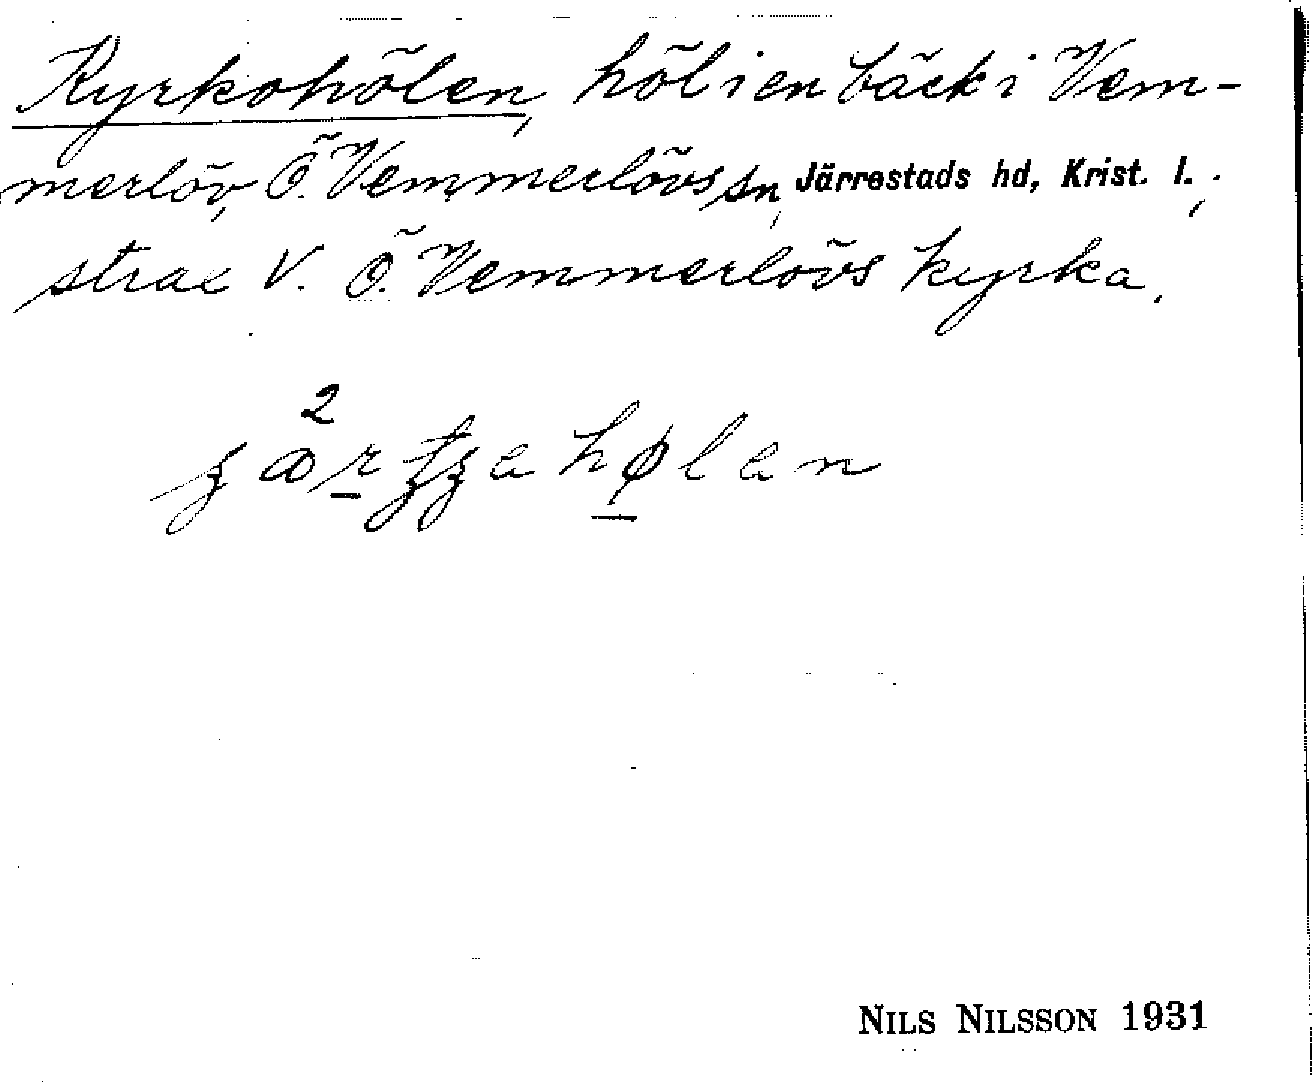 Kyrkohölen, höl i en bäck i Vem-
merlöv, Ö. Vemmerlövs sn, Järrestads hd, Krist. l.,
strax V. Ö. Vemmerlövs kyrka.
2
NILS NILSSON 1931